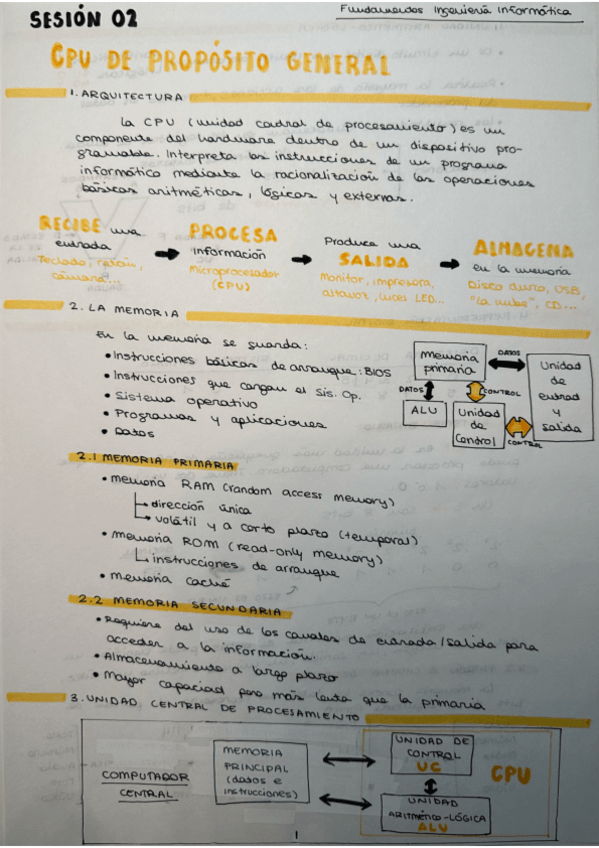 Fundamentos Ingeniería Informática
SESIÓN 02
CPU DE PROPÓSITO GENERAL
1. ARQUITECTURA
La CPU (unidad central de procesamiento) es un
componente del hardware dentro de un dispositivo pro-
gramable. Interpreta las instrucciones de un programa
informático mediante la racionalización de las operaciones
básicas aritméticas, lógicas y externas.
RECIBE una
entrada
Teclado, ratón,
cámara...
PROCESA
información
Microprocesador
(CPU)
Produce una
SALIDA
Monitor, impresora,
altavoz, luces LED...
ALMACENA
en la memoria
Disco duro, USB,
"la nube", CD...
2. LA MEMORIA
En la memoria se guarda:
• Instrucciones básicas de arranque: BIOS
• Instrucciones que cargan el Sis. Op.
• Sistema operativo
• Programas y aplicaciones
• Datos
Memoria
primaria
DATOS
Unidad
de
entrad
y
salida
DATOS
CONTROL
ALU
Unidad
de
Control
CONTROL
2.1 MEMORIA PRIMARIA
• Memoria RAM (random access memory)
dirección única
volátil y a corto plazo (temporal)
• Memoria ROM (read-only memory)
instrucciones de arranque
• Memoria caché
2.2 MEMORIA SECUNDARIA
• Requiere del uso de los canales de entrada/salida para
acceder a la información.
• Almacenamiento a largo plazo
• Mayor capacidad pero más lenta que la primaria
3. UNIDAD CENTRAL DE PROCESAMIENTO
COMPUTADOR
CENTRAL
MEMORIA
PRINCIPAL
(datos e
instrucciones)
UNIDAD DE
CONTROL
UC
CPU
UNIDAD
ARITMÉTICO-LÓGICA
ALU
1